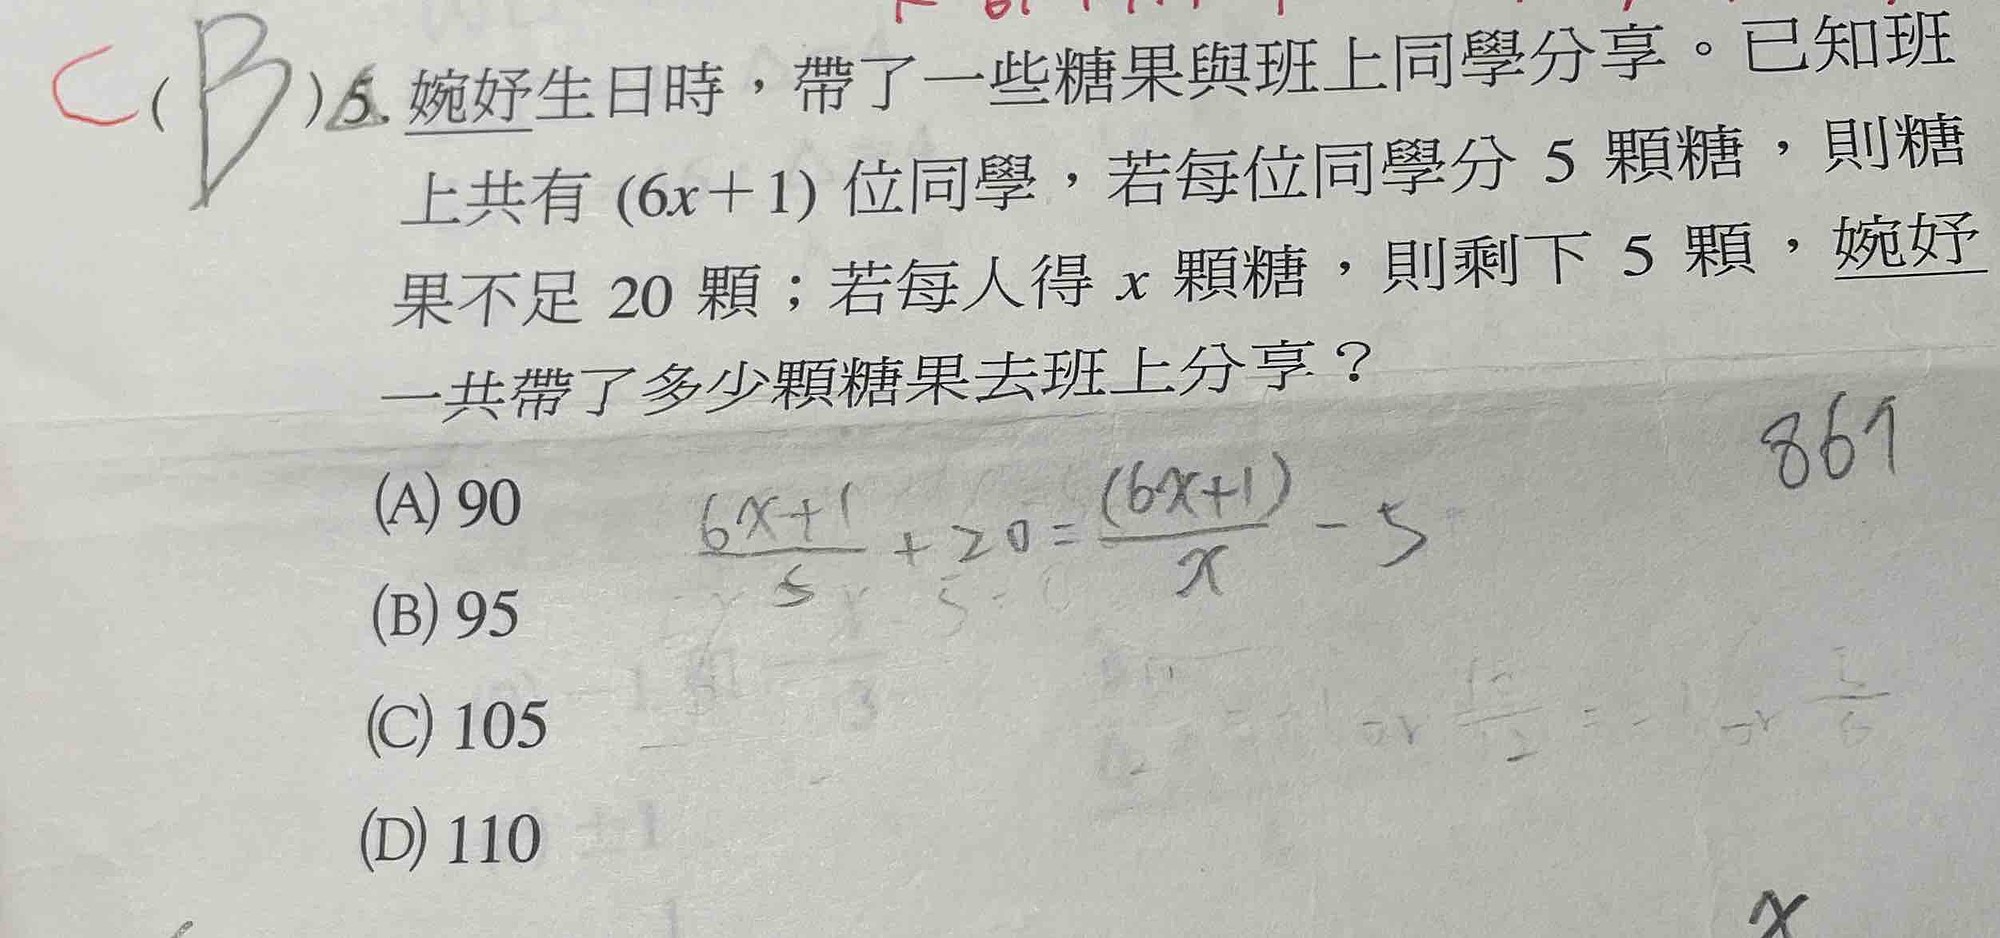 C(B)5. 婉妤生日時，帶了一些糖果與班上同學分享。已知班
上共有 (6x+1) 位同學，若每位同學分 5 顆糖，則糖
果不足 20 顆；若每人得 x 顆糖，則剩下 5 顆，婉妤
一共帶了多少顆糖果去班上分享？
861
(A) 90
(6x+1)/5 + 20 = (6x+1)/x - 5
(B) 95
(C) 105
(D) 110
x